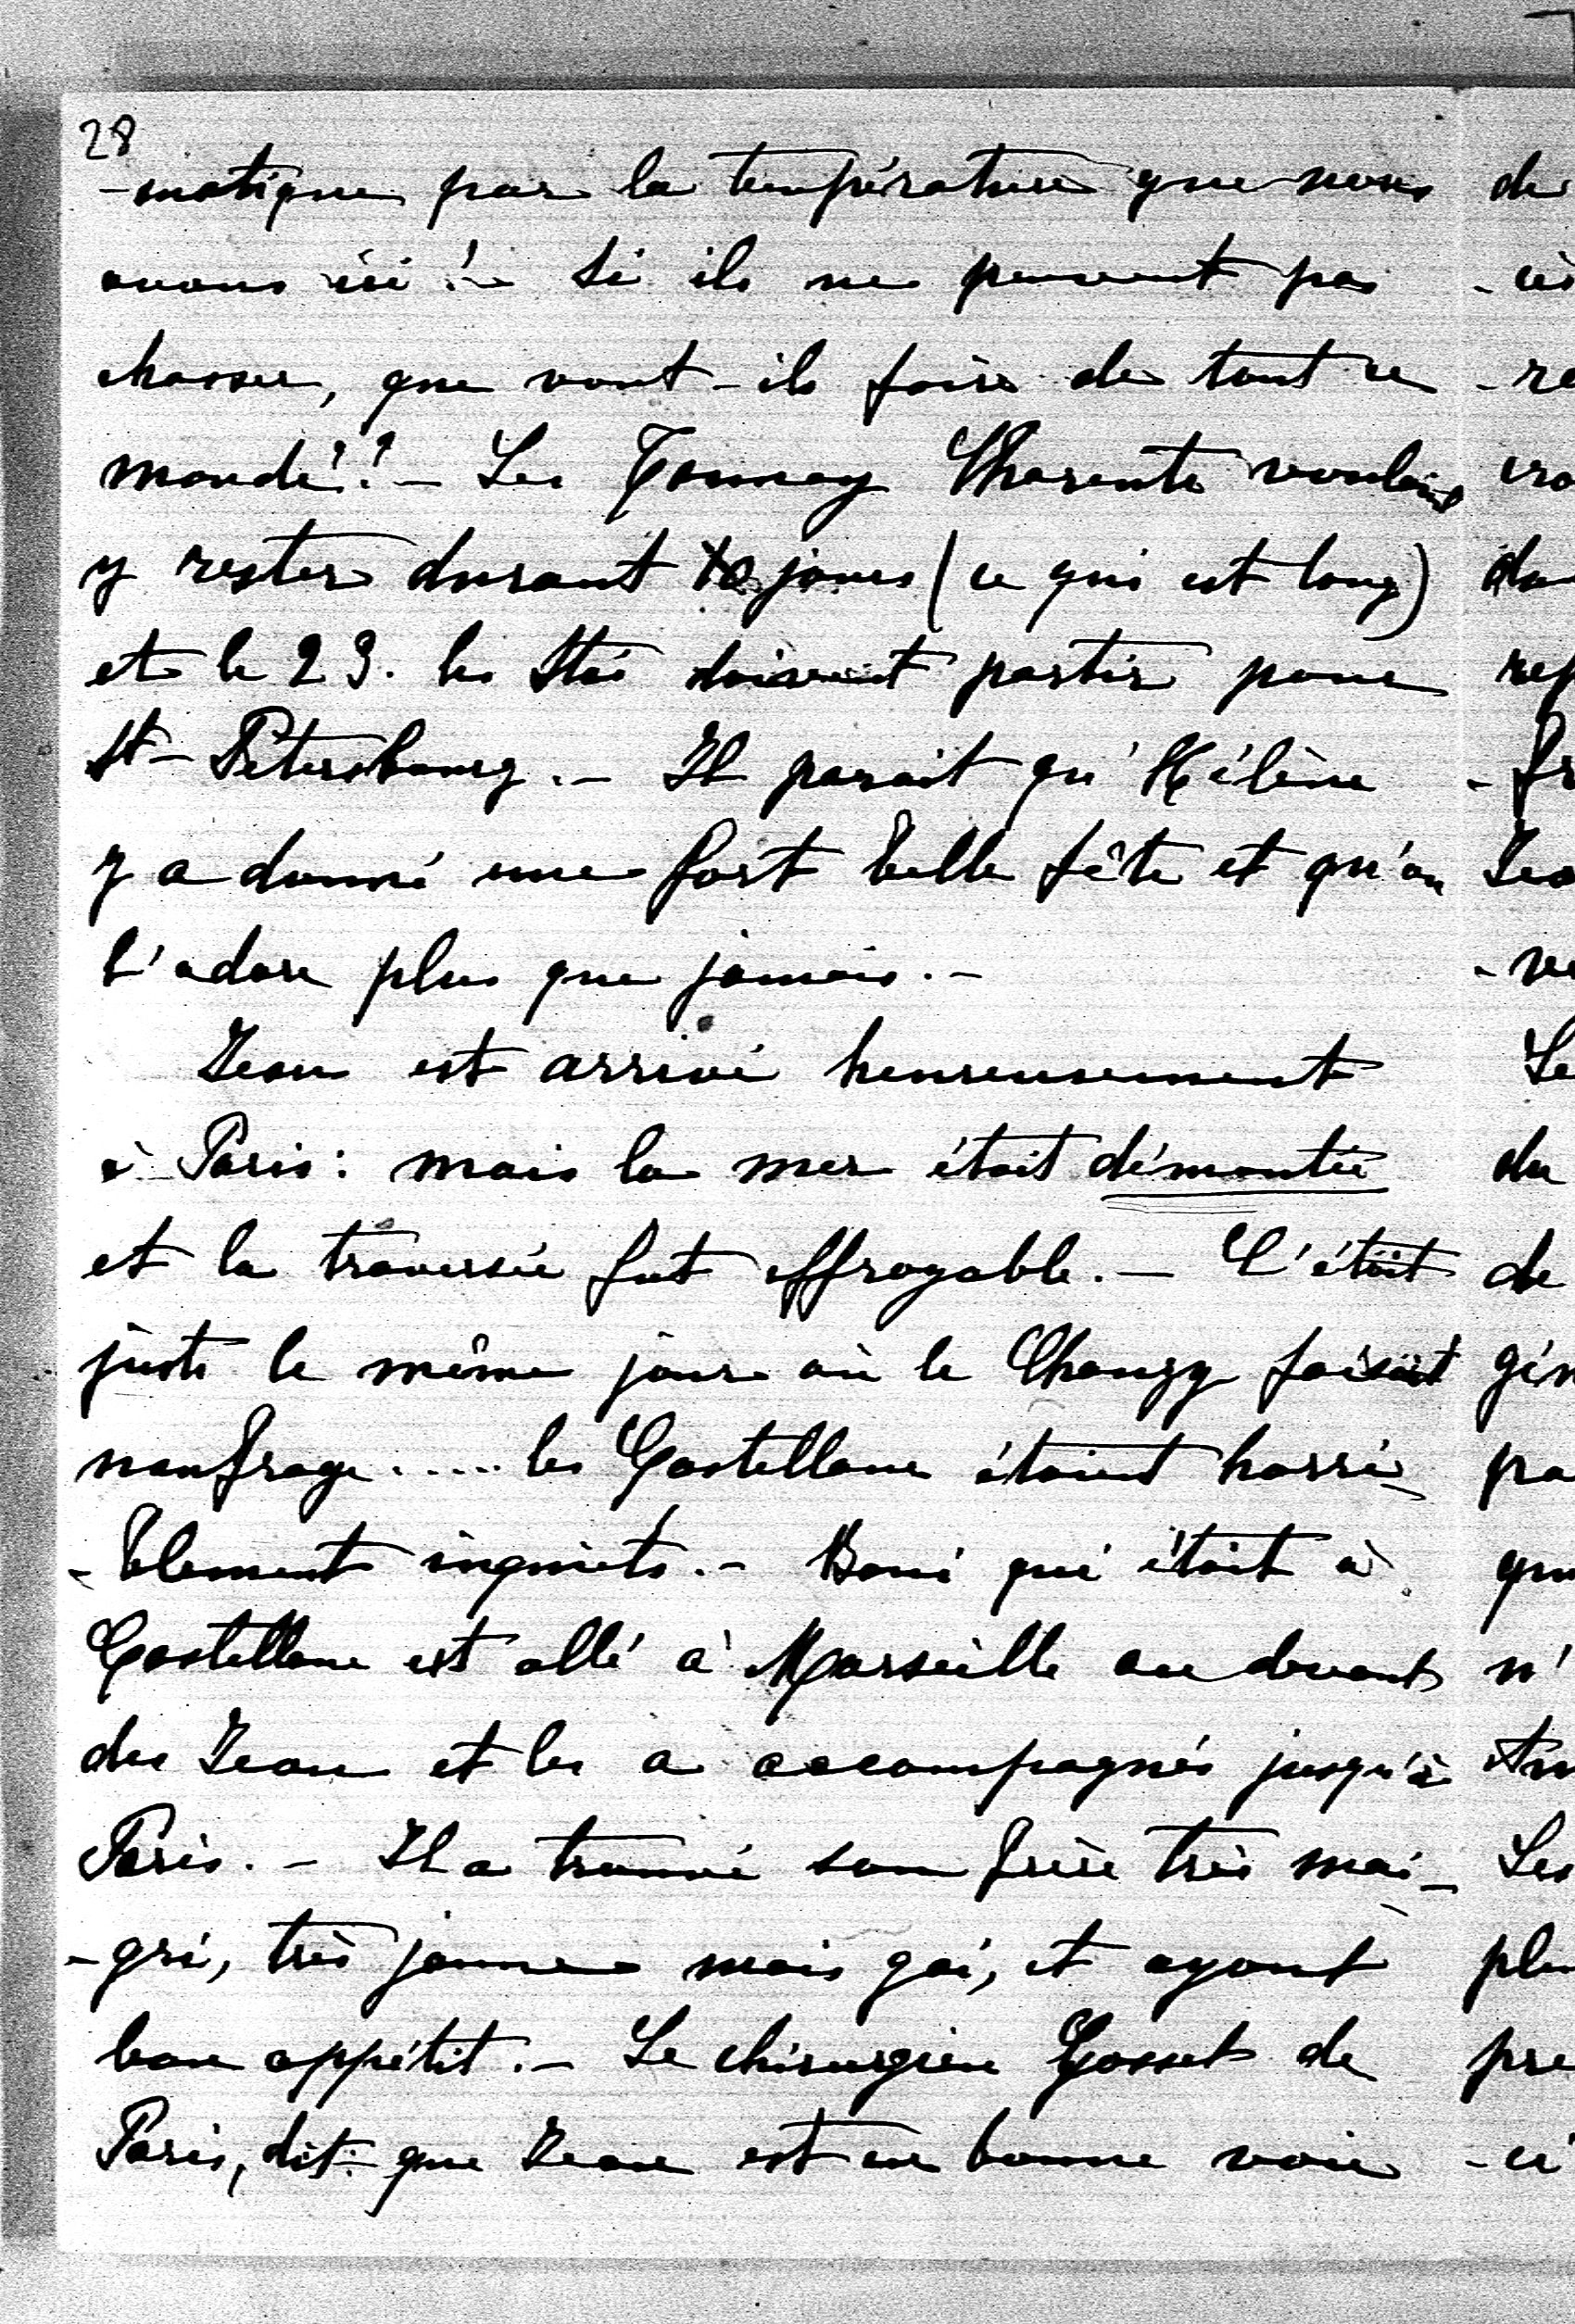 28
-matique par la température que nous
avons ici !- Si ils ne peuvent pas
chasser, que vont-ils faire de tout ce
monde!?- Les Tonnay Charente voulaient
y rester durant 10 jours (ce qui est long)
et le 23. les Stés doivent partir pour
St-Pétersbourg.- Il parait qu'Hélène
y a donné une fort belle fête et qu'on
l'adore plus que jamais.-
Jean est arrivé heureusement
à Paris: mais la mer était démontée
et la traversée fut effroyable.- C'était
juste le même jour où le Chanzy faisait
naufrage..... les Castellane étaient horri-
-blement inquiets.- Boni qui était à
Castellane est allé à Marseille au devant
des Jean et les a accompagnés jusqu'à
Paris.- Il a trouvé son frère très mai-
-gri, très jaune mais gai, et ayant
bon appétit.- Le chirurgien Gosset de
Paris, dit que Jean est en bonne voie